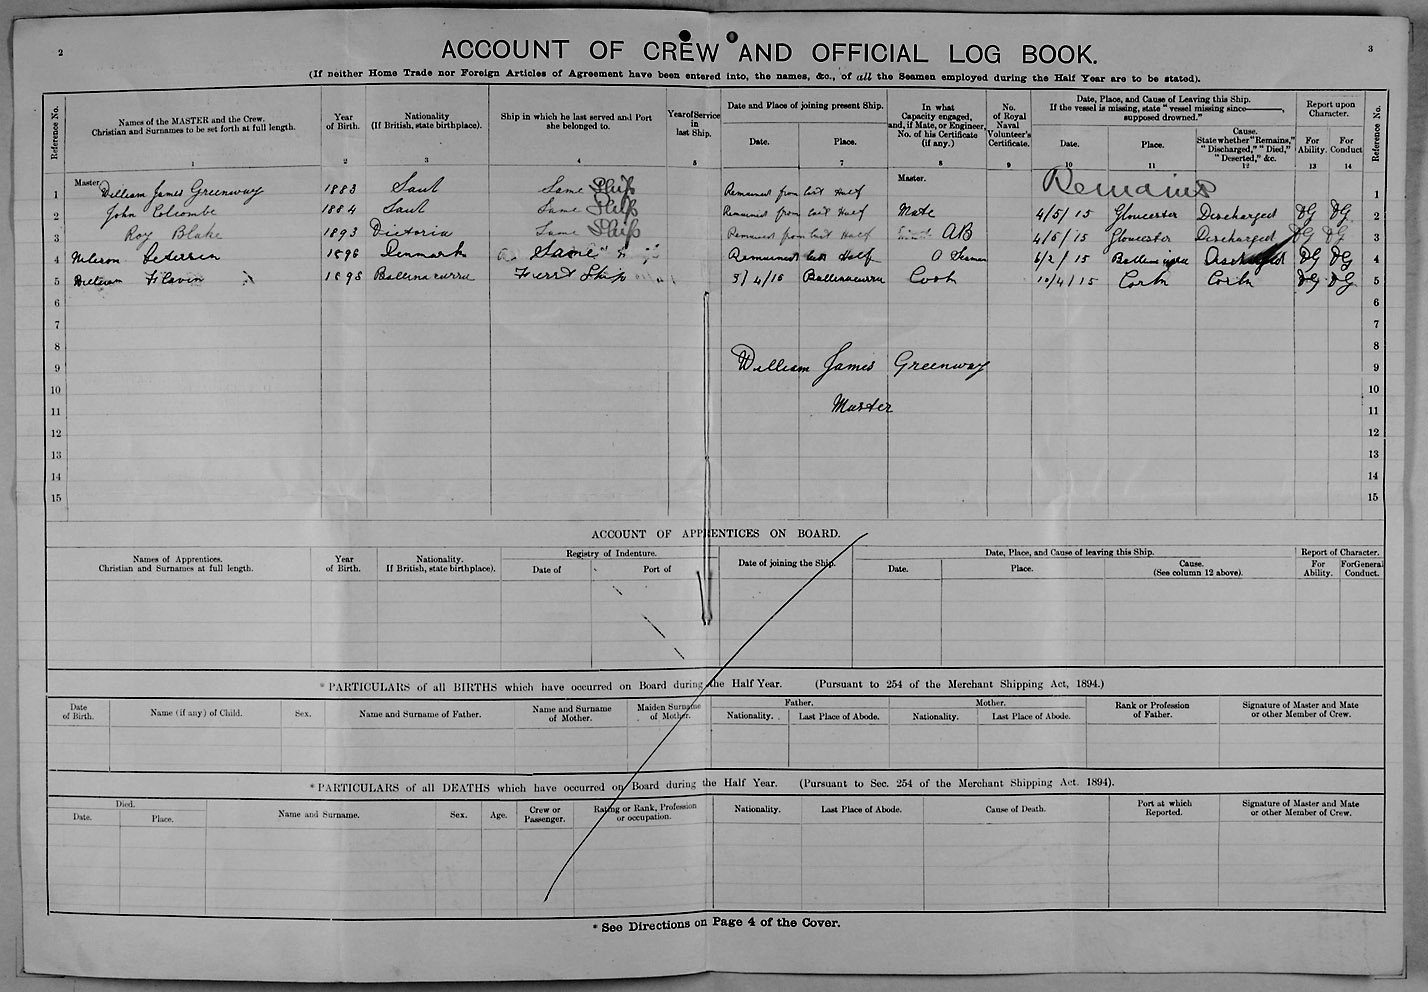 2
ACCOUNT OF CREW AND OFFICIAL LOG BOOK.
3
(If neither Home Trade nor Foreign Articles of Agreement have been entered into, the names, &c., of all the Seamen employed during the Half Year are to be stated).
Reference No.
Names of the MASTER and the Crew. Christian and Surnames to be set forth at full length.
Year of Birth.
Nationality (If British, state birthplace).
Ship in which he last served and Port she belonged to.
Year of Service in last Ship.
Date and Place of joining present Ship.
Date.
Place.
In what Capacity engaged, and, if Mate, or Engineer, No. of his Certificate (if any.)
No. of Royal Naval Volunteer's Certificate.
Date, Place, and Cause of Leaving this Ship.
If the vessel is missing, state "vessel missing since———, supposed drowned."
Date.
Place.
Cause. State whether "Remains," "Discharged," "Died," "Deserted," &c.
Report upon Character.
For Ability.
For Conduct
Reference No.
1 2 3 4 5 7 8 9 10 11 12 13 14
1 Master. William James Greenway 1883 Saul Same Ship Remained from last Half Master. Remains 1
2 John Colcombe 1884 Saul Same Ship Remained from last Half Mate 4/5/15 Gloucester Discharged VG VG 2
3 Roy Blake 1893 Victoria Same Ship Remained from last Half AB 4/5/15 Gloucester Discharged VG VG 3
4 Denmark Same Remained last Half O Seaman 6/2/15 VG VG 4
5 William Flavin 1898 Ballinacurra First Ship 5/4/15 Ballinacurra Cook 10/4/15 Cork Cork VG VG 5
6 6
7 7
8 8
9 William James Greenway 9
10 10
11 Master 11
12 12
13 13
14 14
15 15
ACCOUNT OF APPRENTICES ON BOARD.
Names of Apprentices. Christian and Surnames at full length.
Year of Birth.
Nationality. If British, state birthplace).
Registry of Indenture.
Date of
Port of
Date of joining the Ship.
Date, Place, and Cause of leaving this Ship.
Date.
Place.
Cause. (See column 12 above).
Report of Character.
For Ability.
For General Conduct.
*PARTICULARS of all BIRTHS which have occurred on Board during the Half Year. (Pursuant to 254 of the Merchant Shipping Act, 1894.)
Date of Birth.
Name (if any) of Child.
Sex.
Name and Surname of Father.
Name and Surname of Mother.
Maiden Surname of Mother.
Father.
Nationality.
Last Place of Abode.
Mother.
Nationality.
Last Place of Abode.
Rank or Profession of Father.
Signature of Master and Mate or other Member of Crew.
*PARTICULARS of all DEATHS which have occurred on Board during the Half Year. (Pursuant to Sec. 254 of the Merchant Shipping Act. 1894).
Died.
Date.
Place.
Name and Surname.
Sex.
Age.
Crew or Passenger.
Rating or Rank, Profession or occupation.
Nationality.
Last Place of Abode.
Cause of Death.
Port at which Reported.
Signature of Master and Mate or other Member of Crew.
* See Directions on Page 4 of the Cover.